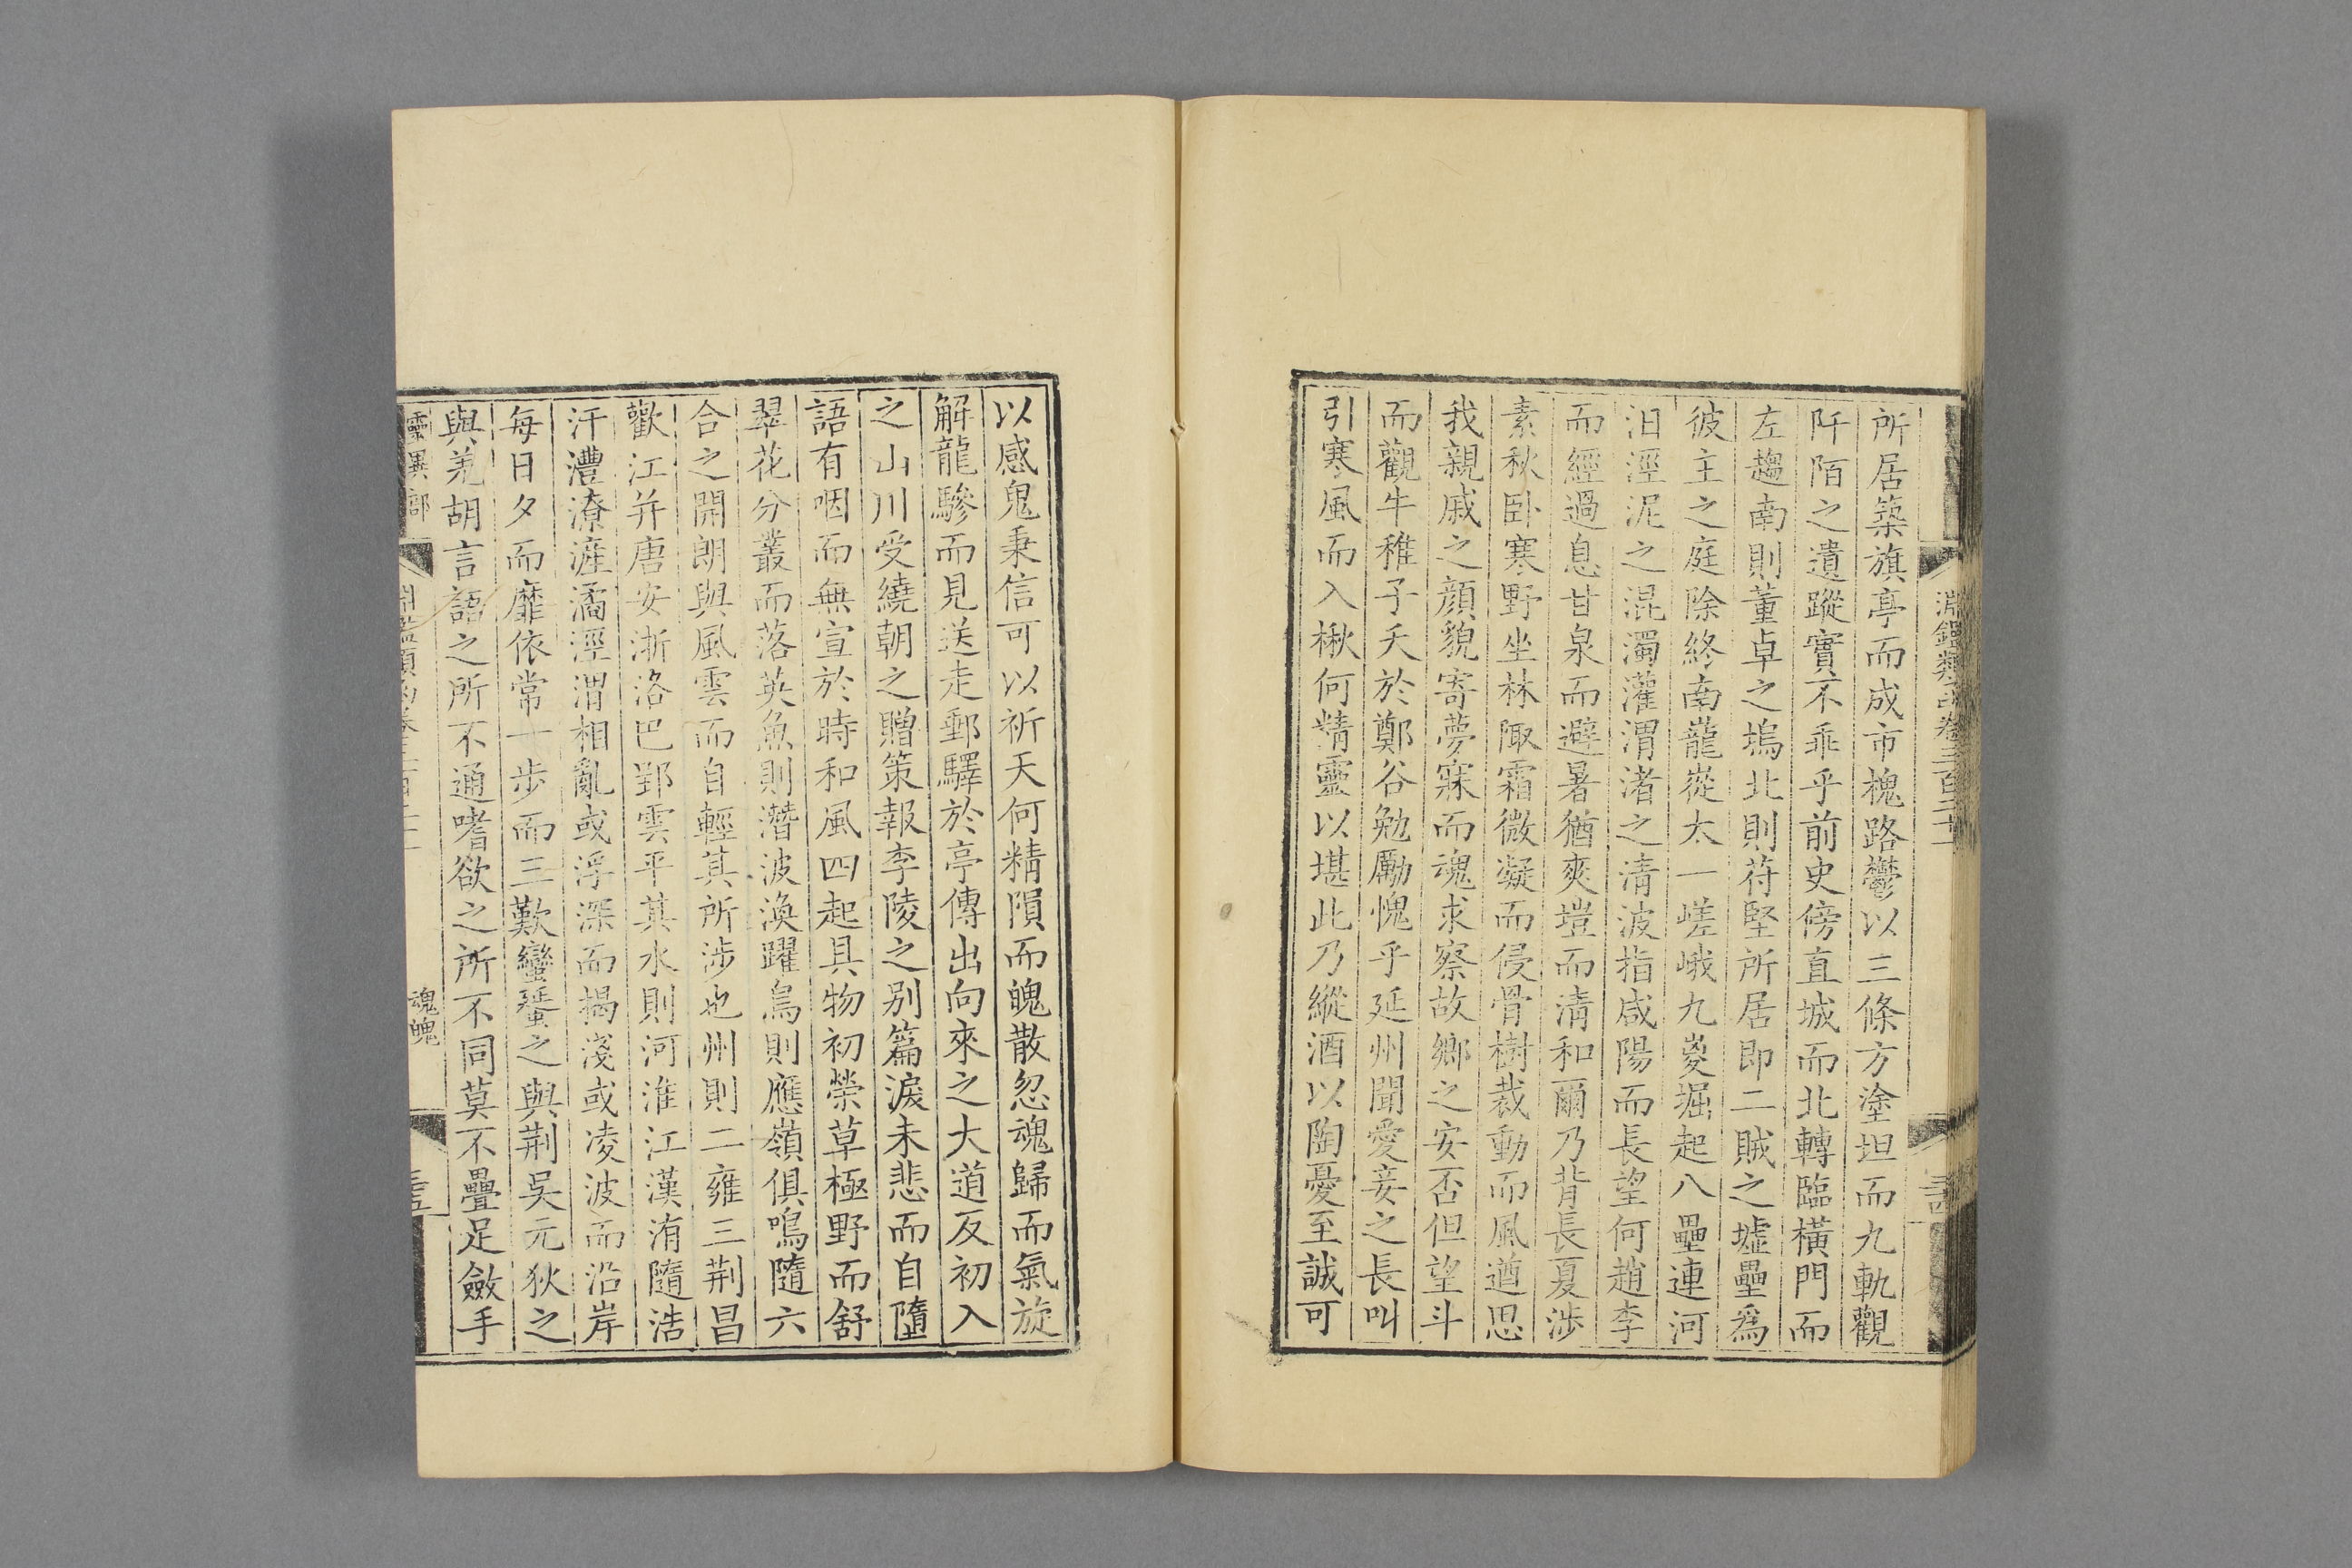 淵鑑類函卷三百二十
所居築旗亭而成市槐路鬱以三條方塗坦而九軌觀
阡陌之遺蹤實不乖乎前史傍直城而北轉臨橫門而
左趨南則董卓之塢北則苻堅所居即二賊之墟壘爲
彼主之庭除終南巃嵸太一嵯峨九嵏堀起八壘連河
汨涇泥之混濁灌渭渚之清波指咸陽而長望何趙李
而經過息甘泉而避暑猶爽塏而清和爾乃背長夏涉
素秋卧寒野坐林陬霜微凝而侵骨樹裁動而風遒思
我親戚之顔貌寄夢寐而魂求察故鄉之安否但望斗
而觀牛稚子夭於鄭谷勉勵愧乎延州聞愛妾之長叫
引寒風而入楸何精靈以堪此乃縱酒以陶憂至誠可
以感鬼秉信可以祈天何精隕而魄散忽魂歸而氣旋
解龍驂而見送走郵驛於亭傳出向來之大道反初入
之山川受繞朝之贈策報李陵之别篇淚未悲而自墮
語有咽而無宣於時和風四起具物初榮草極野而舒
翠花分叢而落英魚則潛波渙躍鳥則應嶺俱鳴隨六
合之開朗與風雲而自輕其所涉也州則二雍三荆昌
歡江并唐安浙洛巴郢雲平其水則河淮江漢洧隨浩
汗澧潦漄潏涇渭相亂或浮深而揭淺或凌波而沿岸
每日夕而靡依常一步而三歎蠻蜑之與荆吳元狄之
與羌胡言語之所不通嗜欲之所不同莫不疊足斂手
靈異部
魂魄